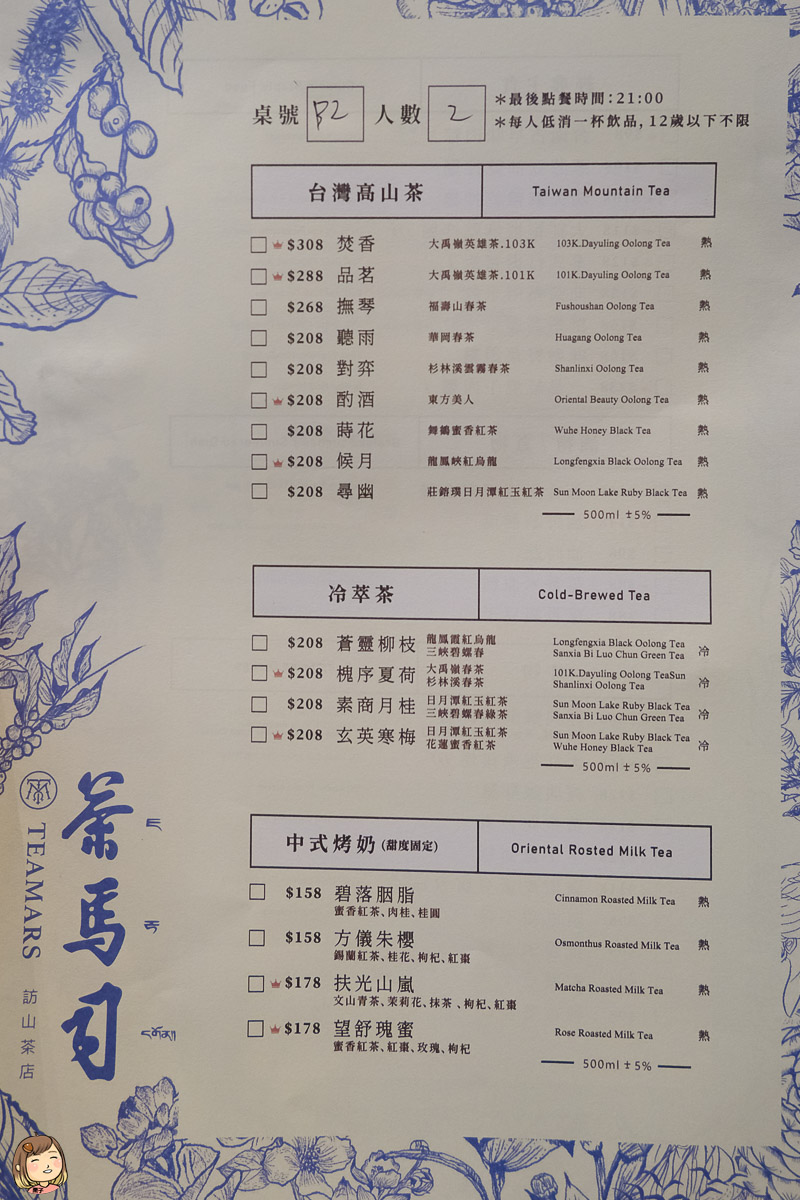 桌號 B2 人數 2
＊最後點餐時間：21:00
＊每人低消一杯飲品，12歲以下不限
台灣高山茶 Taiwan Mountain Tea
$308 焚香 大禹嶺英雄茶.103K 103K.Dayuling Oolong Tea 熱
$288 品茗 大禹嶺英雄茶.101K 101K.Dayuling Oolong Tea 熱
$268 撫琴 福壽山春茶 Fushoushan Oolong Tea 熱
$208 聽雨 華岡春茶 Huagang Oolong Tea 熱
$208 對弈 杉林溪雲霧春茶 Shanlinxi Oolong Tea 熱
$208 酌酒 東方美人 Oriental Beauty Oolong Tea 熱
$208 蒔花 舞鶴蜜香紅茶 Wuhe Honey Black Tea 熱
$208 候月 龍鳳峽紅烏龍 Longfengxia Black Oolong Tea 熱
$208 尋幽 莊鎔璞日月潭紅玉紅茶 Sun Moon Lake Ruby Black Tea 熱
500ml ±5%
冷萃茶 Cold-Brewed Tea
$208 蒼靈柳枝 龍鳳霞紅烏龍 Longfengxia Black Oolong Tea 冷
三峽碧螺春 Sanxia Bi Luo Chun Green Tea
$208 槐序夏荷 大禹嶺春茶 101K.Dayuling Oolong TeaSun 冷
杉林溪春茶 Shanlinxi Oolong Tea
$208 素商月桂 日月潭紅玉紅茶 Sun Moon Lake Ruby Black Tea 冷
三峽碧螺春綠茶 Sanxia Bi Luo Chun Green Tea
$208 玄英寒梅 日月潭紅玉紅茶 Sun Moon Lake Ruby Black Tea 冷
花蓮蜜香紅茶 Wuhe Honey Black Tea
500ml ±5%
中式烤奶(甜度固定) Oriental Rosted Milk Tea
$158 碧落胭脂 Cinnamon Roasted Milk Tea 熱
蜜香紅茶、肉桂、桂圓
$158 方儀朱櫻 Osmonthus Roasted Milk Tea 熱
錫蘭紅茶、桂花、枸杞、紅棗
$178 扶光山嵐 Matcha Roasted Milk Tea 熱
文山青茶、茉莉花、抹茶 、枸杞、紅棗
$178 望舒瑰蜜 Rose Roasted Milk Tea 熱
蜜香紅茶、紅棗、玫瑰、枸杞
500ml ±5%
茶馬司
TEAMARS 訪山茶店